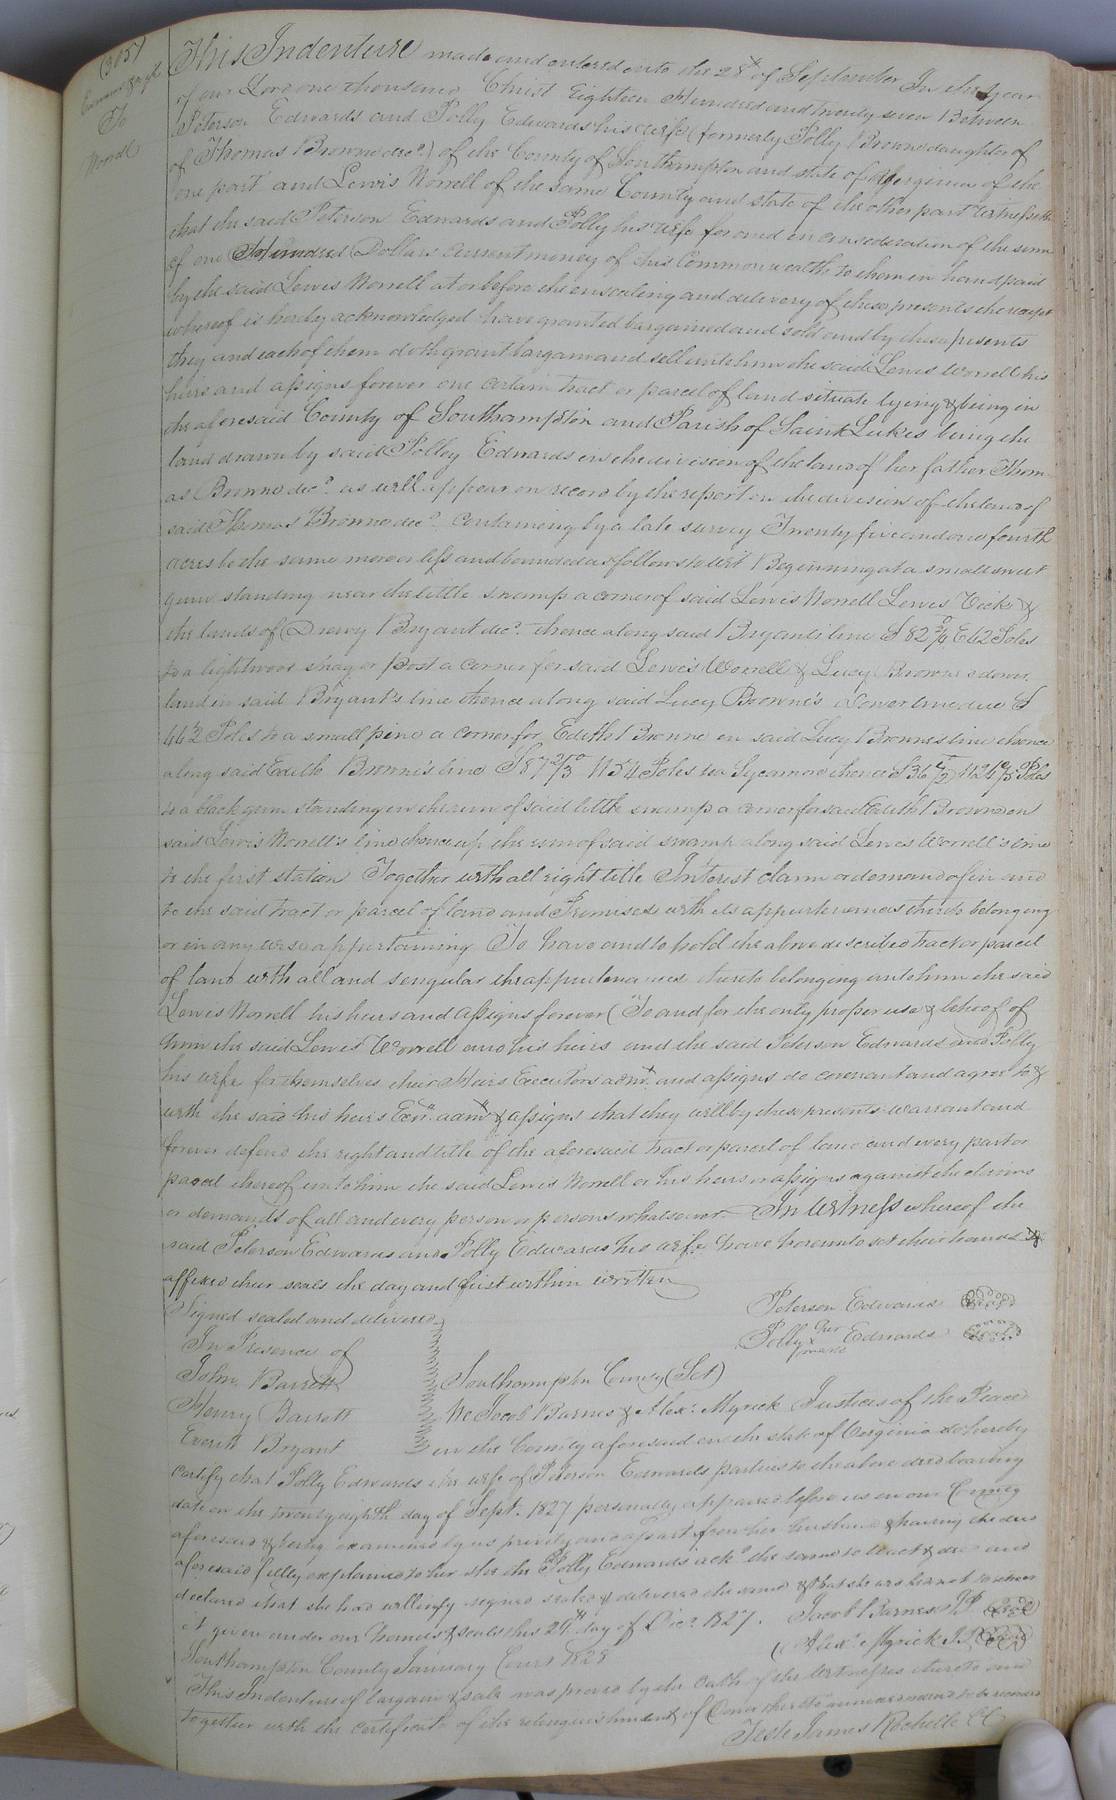 (305)
Edwards & ux
To
Worrell
This Indenture made and entered into the 28th of September In the year
of our Lord one thousand Christ Eighteen Hundred and twenty seven Between
Peterson Edwards and Polly Edwards his wife (formerly Polly Browne daughter of
of Thomas Browne decd) of the County of Southampton and state of Virginia of the
one part and Lewis Worrell of the same County and state of the other part Witnesseth
that the said Peterson Edwards and Polly his wife for and in consideration of the sum
of one Hundred Dollars current money of this Commonwealth to them in hand paid
by the said Lewis Worrell at or before the ensealing and delivery of these presents the receipt
whereof is hereby acknowledged have granted bargained and sold and by these presents
they and each of them doth grant bargain and sell unto him the said Lewis Worrell his
heirs and assigns forever one certain tract or parcel of land situate lying & being in
the aforesaid County of Southampton and Parish of Saint Lukes being the
land drawn by said Polley Edwards in the division of the land of her father Thom
as Browne decd. as will appear on record by the report on the division of the land of
said Thomas Browne decd. containing by a late survey Twenty five and one fourth
acres be the same more or less and bounded as follows to wit Beginning at a small sweet
gum standing near the little swamp a corner of said Lewis Worrell Lewis Vicks &
the lands of Drewry Bryant decd. thence along said Bryants line S 82 3/4 E 62 Poles
to a lightwood snag or post a corner for said Lewis Worrell & Lucy Browns down
land in said Bryant's line thence along said Lucy Browne's Dower line due S
44 1/2 Poles to a small pine a corner for Edith Browne in said Lucy Brownes line thence
along said Edith Browne's line S 87 2/3 W 54 Poles to a Sycamore thence S 36 1/2 W 24 Poles
to a black gum standing in the run of said little swamp a corner for said Edith Browne on
said Lewis Worrell's line thence up the run of said swamp along said Lewis Worrell's line
to the first station Together with all right title Interest claim or demand of in and
to the said tract or parcel of land and Premises with its appurtenances thereto belonging
or in any wise appertaining To have and to hold the above described tract or parcel
of land with all and singular the appurtenances thereto belonging unto him the said
Lewis Worrell his heirs and assigns forever (To and for the only proper use & behoof of
him the said Lewis Worrell and his heirs and the said Peterson Edwards and Polly
his wife for themselves their Heirs Executors admrs. and assigns do covenant and agree to &
with the said his heirs Exrs. admrs & assigns that they will by these presents warrant and
forever defend the right and title of the aforesaid tract or parcel of land and every part or
parcel thereof unto him the said Lewis Worrell or his heirs or assigns against the claims
or demands of all and every person or persons whatsoever In Witness whereof the
said Peterson Edwards and Polly Edwards his wife have hereunto set their hands &
affixed their seals the day and first within written
Signed sealed and delivered
In Presence of
John Barrett
Henry Barrett
Everitt Bryant
Peterson Edwards (Seal)
Polly her x mark Edwards (Seal)
Southampton County (Sct)
We Jacob Barnes & Alexr. Myrick Justices of the Peace
in the County aforesaid in the state of Virginia do hereby
certify that Polly Edwards the wife of Peterson Edwards parties to the above deed bearing
date on the twenty eighth day of Sept. 1827 personally appeared before us in our County
aforesaid & being examined by us privily and apart from her husband & having the deed
aforesaid fully explained to her she the Polly Edwards ackd the same to be act & deed and
declared that she had willingly signed sealed & delivered the same & that she wished not to retract
it given under our Hands & seals this 29th day of Decr. 1827. Jacob Barnes JP (Seal)
Alexr. Myrick J.P. (Seal)
Southampton County January Court 1828
This Indenture of bargain & sale was proved by the oath of the Witnesses thereto and
together with the certificate of the relinquishment of Dower thereto annexed ordered to be recorded
Teste James Rochelle CC